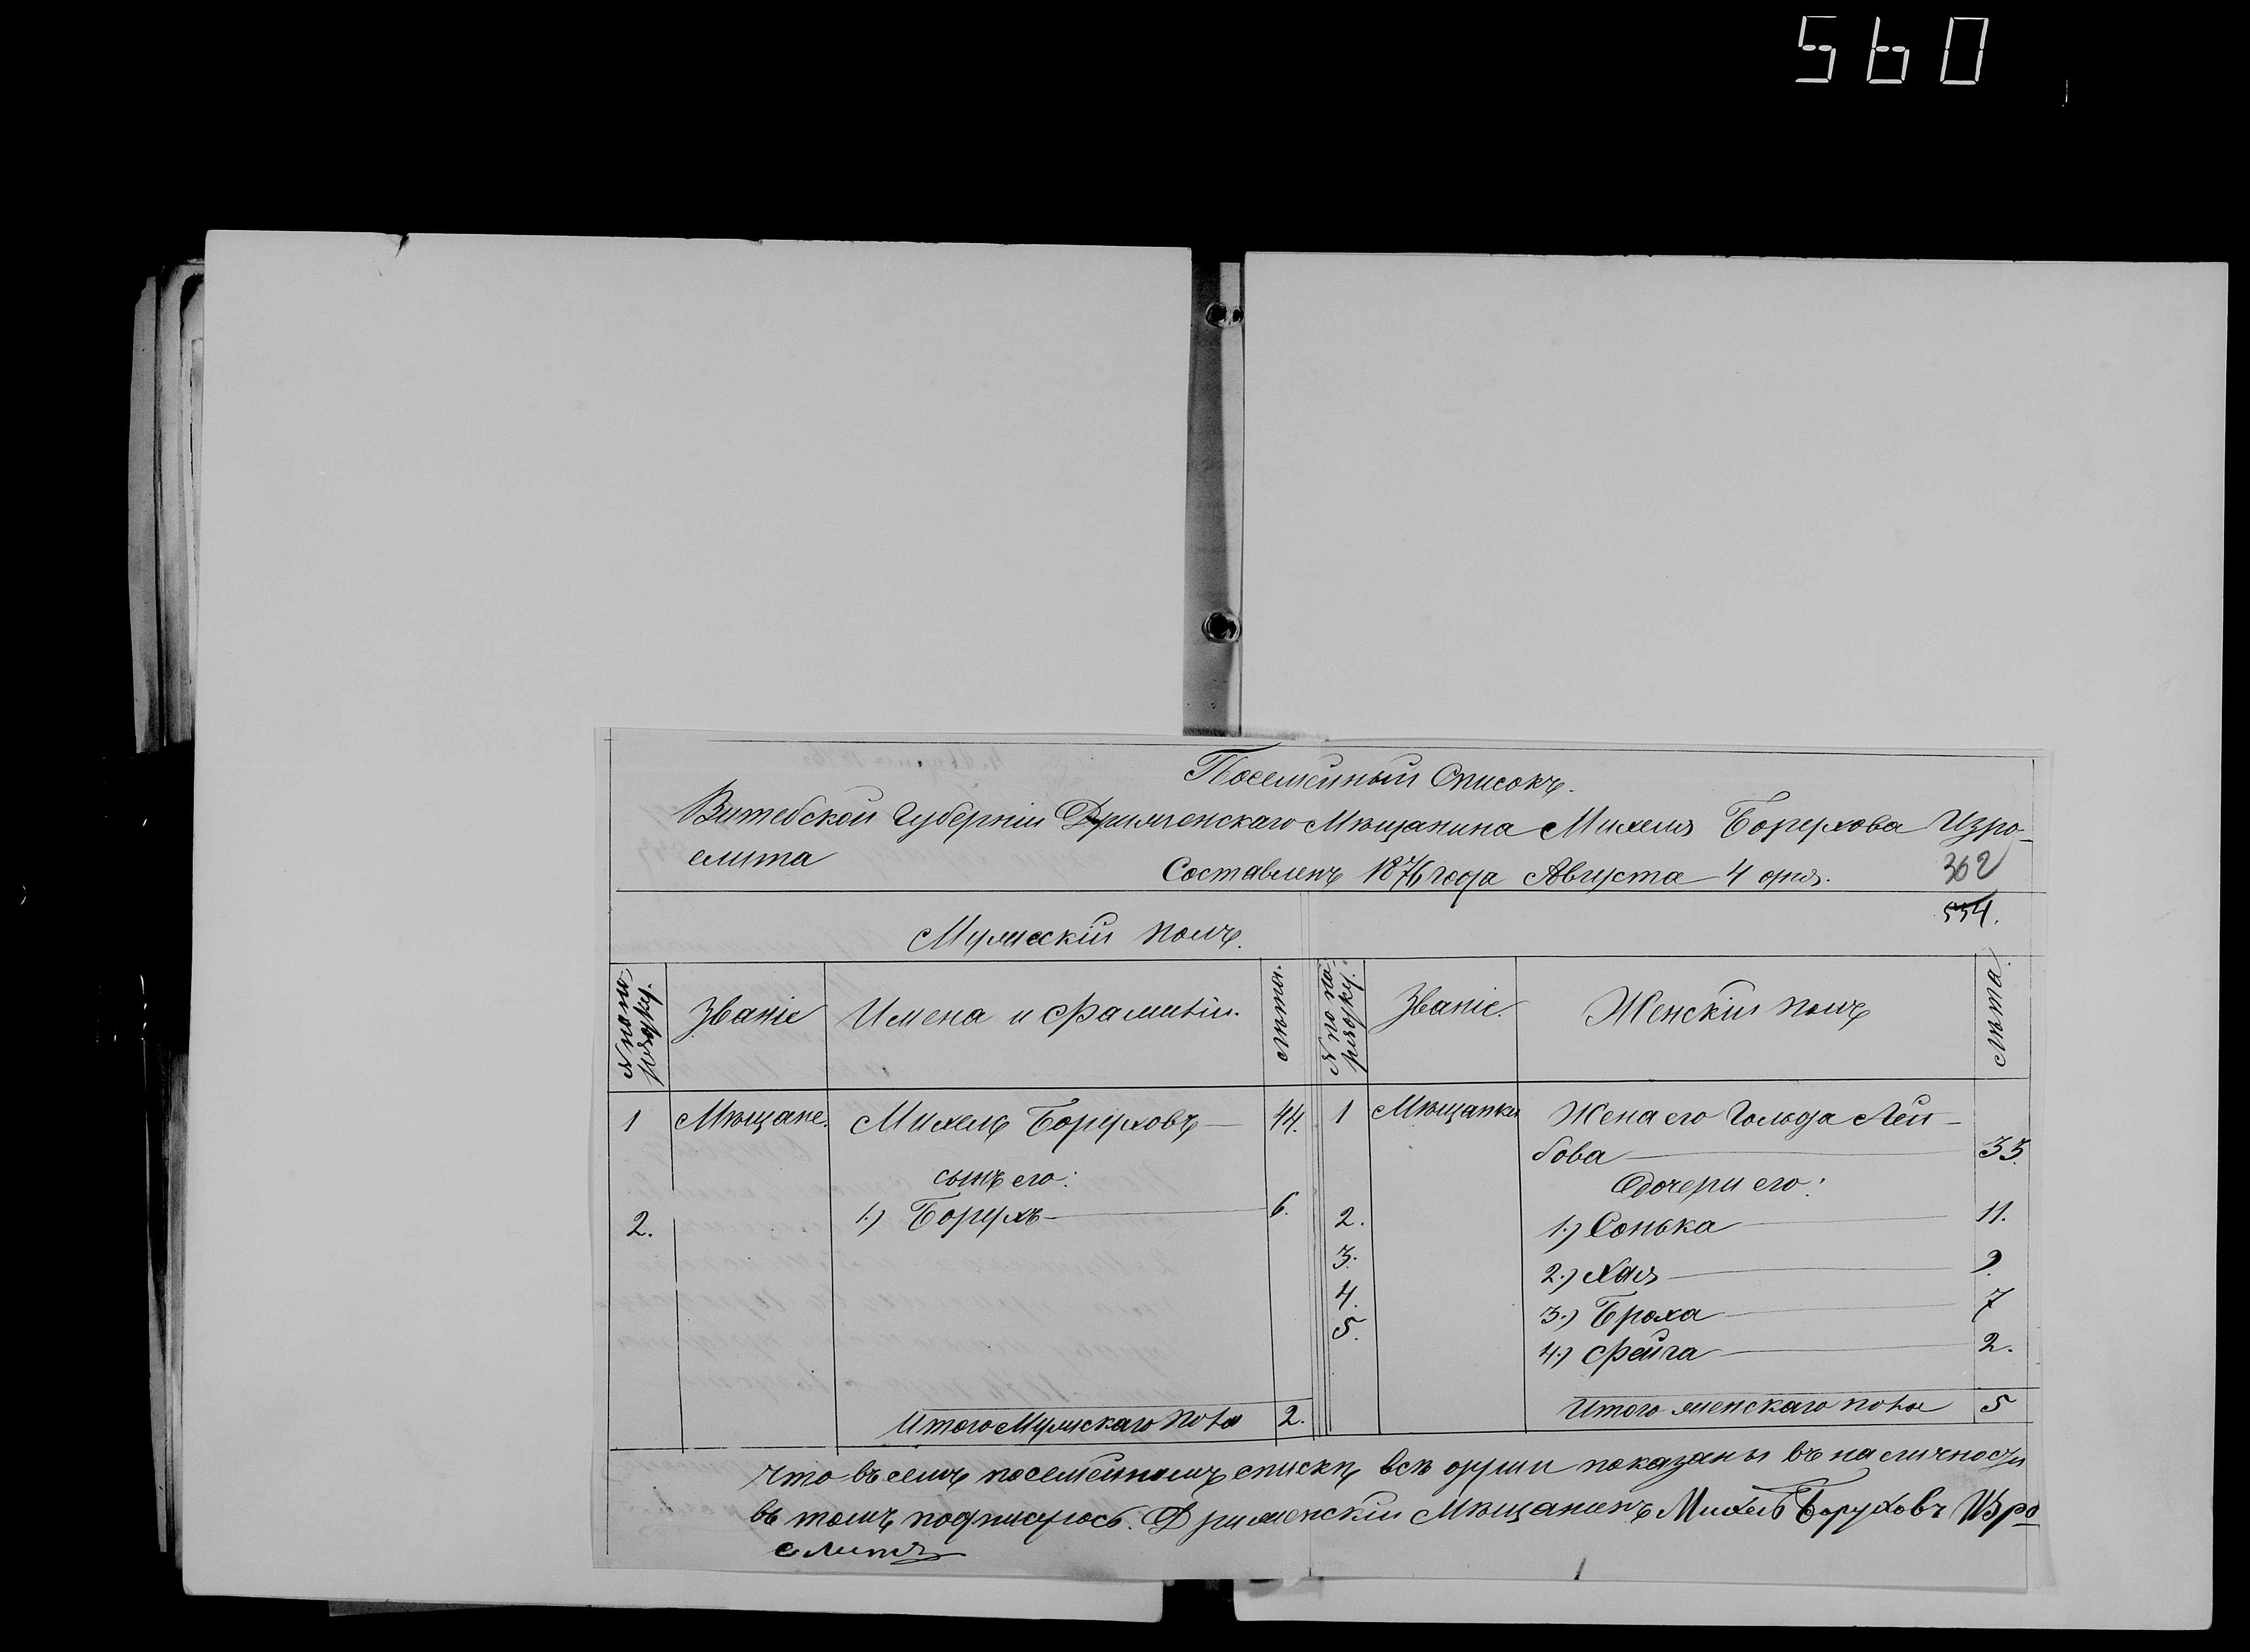 560
Посемейный Списокъ.
Витебской Губерніи Дриженскаго Мѣщанина Михеля Борухова Изро-
елита
Составленъ 1876 года Августа 4 дня.
362
554.
Мужескій полъ.
№ по по-
рядку.
Званіе
Имена и Фамиліи.
Лѣта.
№ по по-
рядку.
Званіе.
Женскій полъ
Лѣта.
1 Мѣщане. Михель Боруховъ 44.
сынъ его:
2. 1.) Борухъ 6.
1 Мѣщанки Жена его Гольда Лей-
бова 33.
Дочери его:
2. 1.) Сонька 11.
3. 2.) Хая 9.
4. 3.) Броха 7
5. 4.) Фейга 2.
Итого Мужскаго пола 2.
Итого женскаго пола 5
Что въ семъ посемейномъ спискѣ всѣ души показаны въ наличности
въ томъ подписуюсь. Дриженскій Мѣщанинъ Михель Боруховъ Изро
елитъ